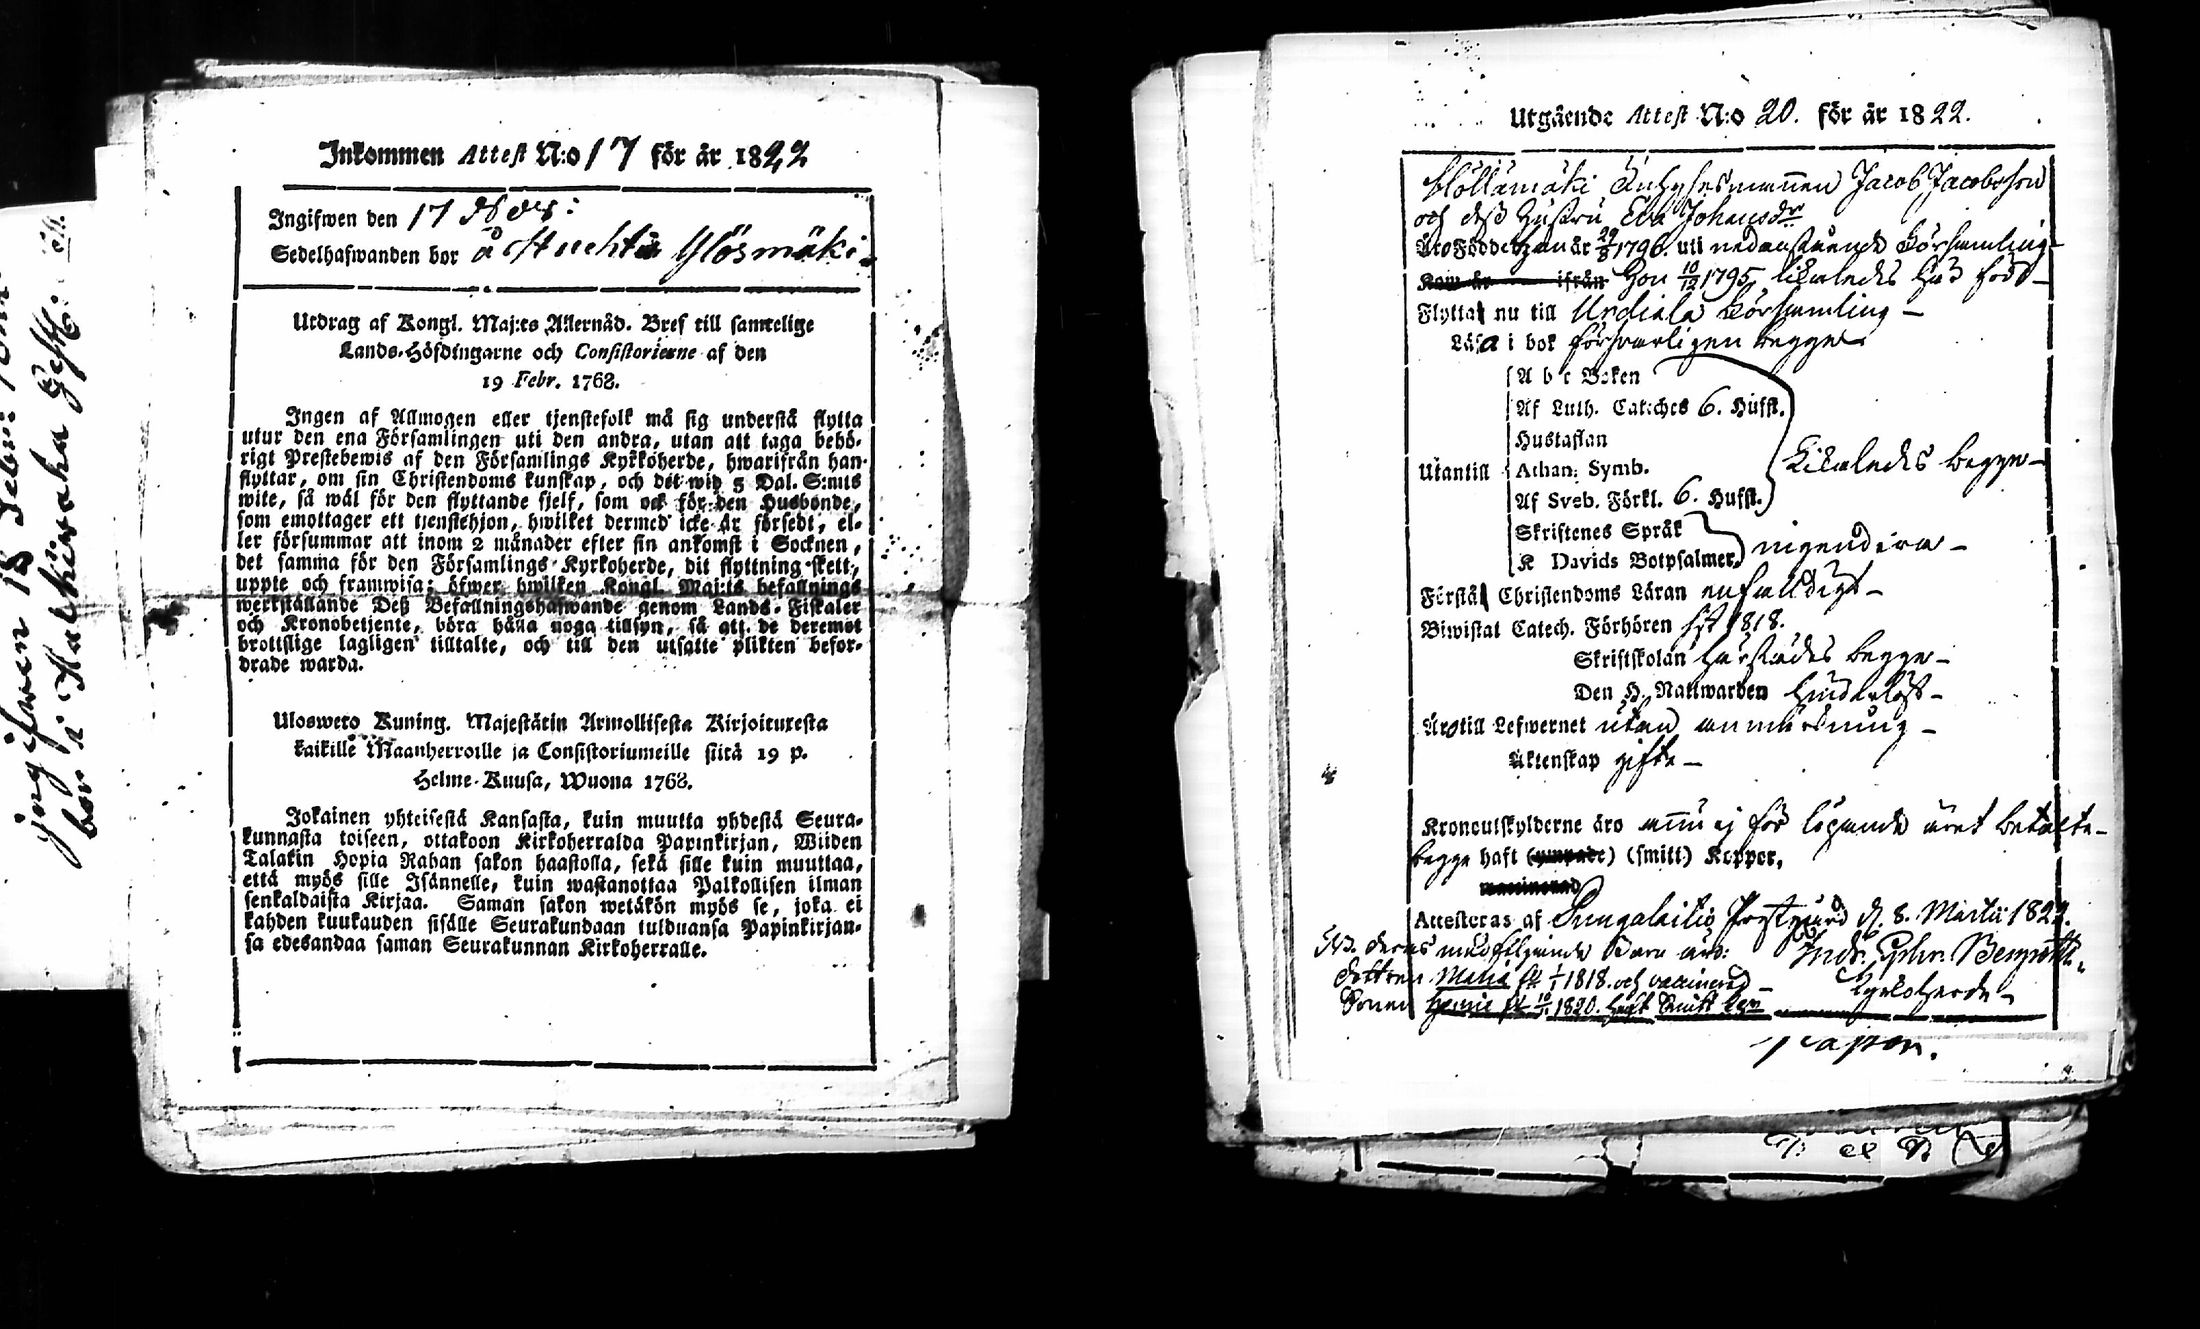 ingifwen 18
bor i
Inkommen Attest N:o 17 för år 1822
Ingifwen den 17
Sedelhafwanden bor å Huchtis Ylösmäki
Utdrag af Kongl. Maj:ts Allernåd. Bref till samtelige
Lands-Höfdingarne och Consistorierne af den
19 Febr. 1768.
Ingen af Allmogen eller tjenstefolk må sig understå flytta
utur den ena Församlingen uti den andra, utan att taga behö-
rigt Prestebewis af den Församlings Kyrkoherde, hwarifrån han
flyttar, om sin Christendoms kunskap, och det wid 5 Dal. S:mts
wite, så wäl för den flyttande sjelf, som ock för den Husbonde,
som emottager ett tjenstehjon, hwilket dermed icke är försedt, el-
ler försummar att inom 2 månader efter sin ankomst i Socknen,
det samma för den Församlings Kyrkoherde, dit flyttning skett,
uppte och framwisa; öfwer hwilken Kongl. Maj:ts befallnings
werkställande Deß Befallningshafwande genom Lands-Fiskaler
och Kronobetjente, böra hålla noga tillsyn, så att de deremot
brottslige lagligen tilltalte, och till den utsatte plikten befor-
drade warda.
Ulosweto Kuning. Majestätin Armollisesta Kirjoituxesta
kaikille Maanherroille ja Consistoriumeille siitä 19 p.
Helme-Kuusa, Wuona 1768.
Jokainen yhteisestä Kansasta, kuin muutta yhdestä Seura-
kunnasta toiseen, ottakoon Kirkoherralda Papinkirjan, Wiiden
Talarin Hopia Rahan sakon haastolla, sekä sille kuin muuttaa,
että myös sille Isännelle, kuin wastanottaa Palkollisen ilman
senkaldaista Kirjaa. Saman sakon wetäkön myös se, joka ei
kahden kuukauden sisälle Seurakundaan tulduansa Papinkirjan-
sa edesandaa saman Seurakunnan Kirkoherralle.
Utgående Attest N:o 20. för år 1822.
Jacob Jacobsson
och deß Hustru Eva Johansdr
Äro Födde han år 29/8 1796. uti nedanstående Församling
Kom år ifrån Hon 10/12 1795 likaledes här född
Flytta nu till Urdiala Församling
Läsa i bok försvarligen begge
A b c Boken
Af Luth. Cateches 6. Hufst.
Hustaflan
Utantill Athan: Symb. Likaledes begge
Af Sveb. Förkl. 6. Hufst.
Skriftenes Språk
K Davids Botpsalmer ingendera
Förstå Christendoms Läran enfaldigt
Biwistat Catech. Förhören sist 1818.
Skriftskolan härstädes begge
Den H. Nattwarden hinderlöst
Äro till Lefwernet utan anmärkning
Äktenskap gifte
Kronoutskylderne äro ännu ej för löpande året betalte
begge haft (ympade) (smitt) Koppor,
vaccinerad
Attesteras af Sungalaitio Prestgård d. 8. Martii 1822.
NB. deras medföljande Barn äro:
dottren Maria fd 1/1 1818. och vaccinerad
Kyrkoherde
Sonen 10/ 1820. haft Smitt kop
kappor.